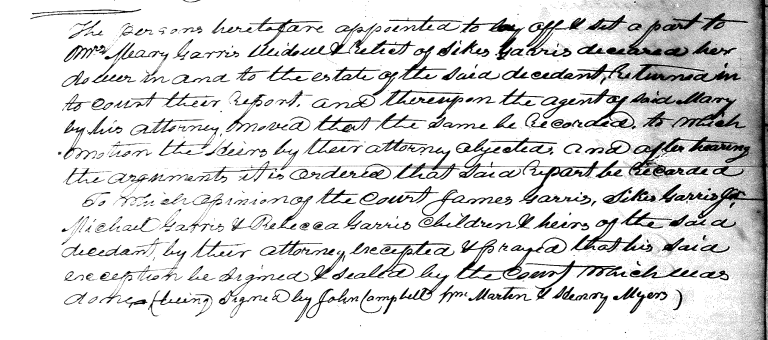 The persons heretofore appointed to lay off & set a part to
Mrs Mary Garris Widow & Relict of Sikes Garris deceased her
dower in and to the estate of the said decedant, Returned in
to court their report. and thereupon the agent of said Mary
by his attorney, moved that the same be Recorded. to which
motion the Heirs by their attorney objected. and after hearing
the arguments it is ordered that said report be Recorded
To which opinion of the court James Garris, Sikes Garris Jr.
Michael Garris & Rebecca Garris children & heirs of the said
decedant, by their attorney excepted & prayed that his said
exception be signed & sealed by the court which was
done, (being signed by John Campbell Wm Martin & Henry Myers)